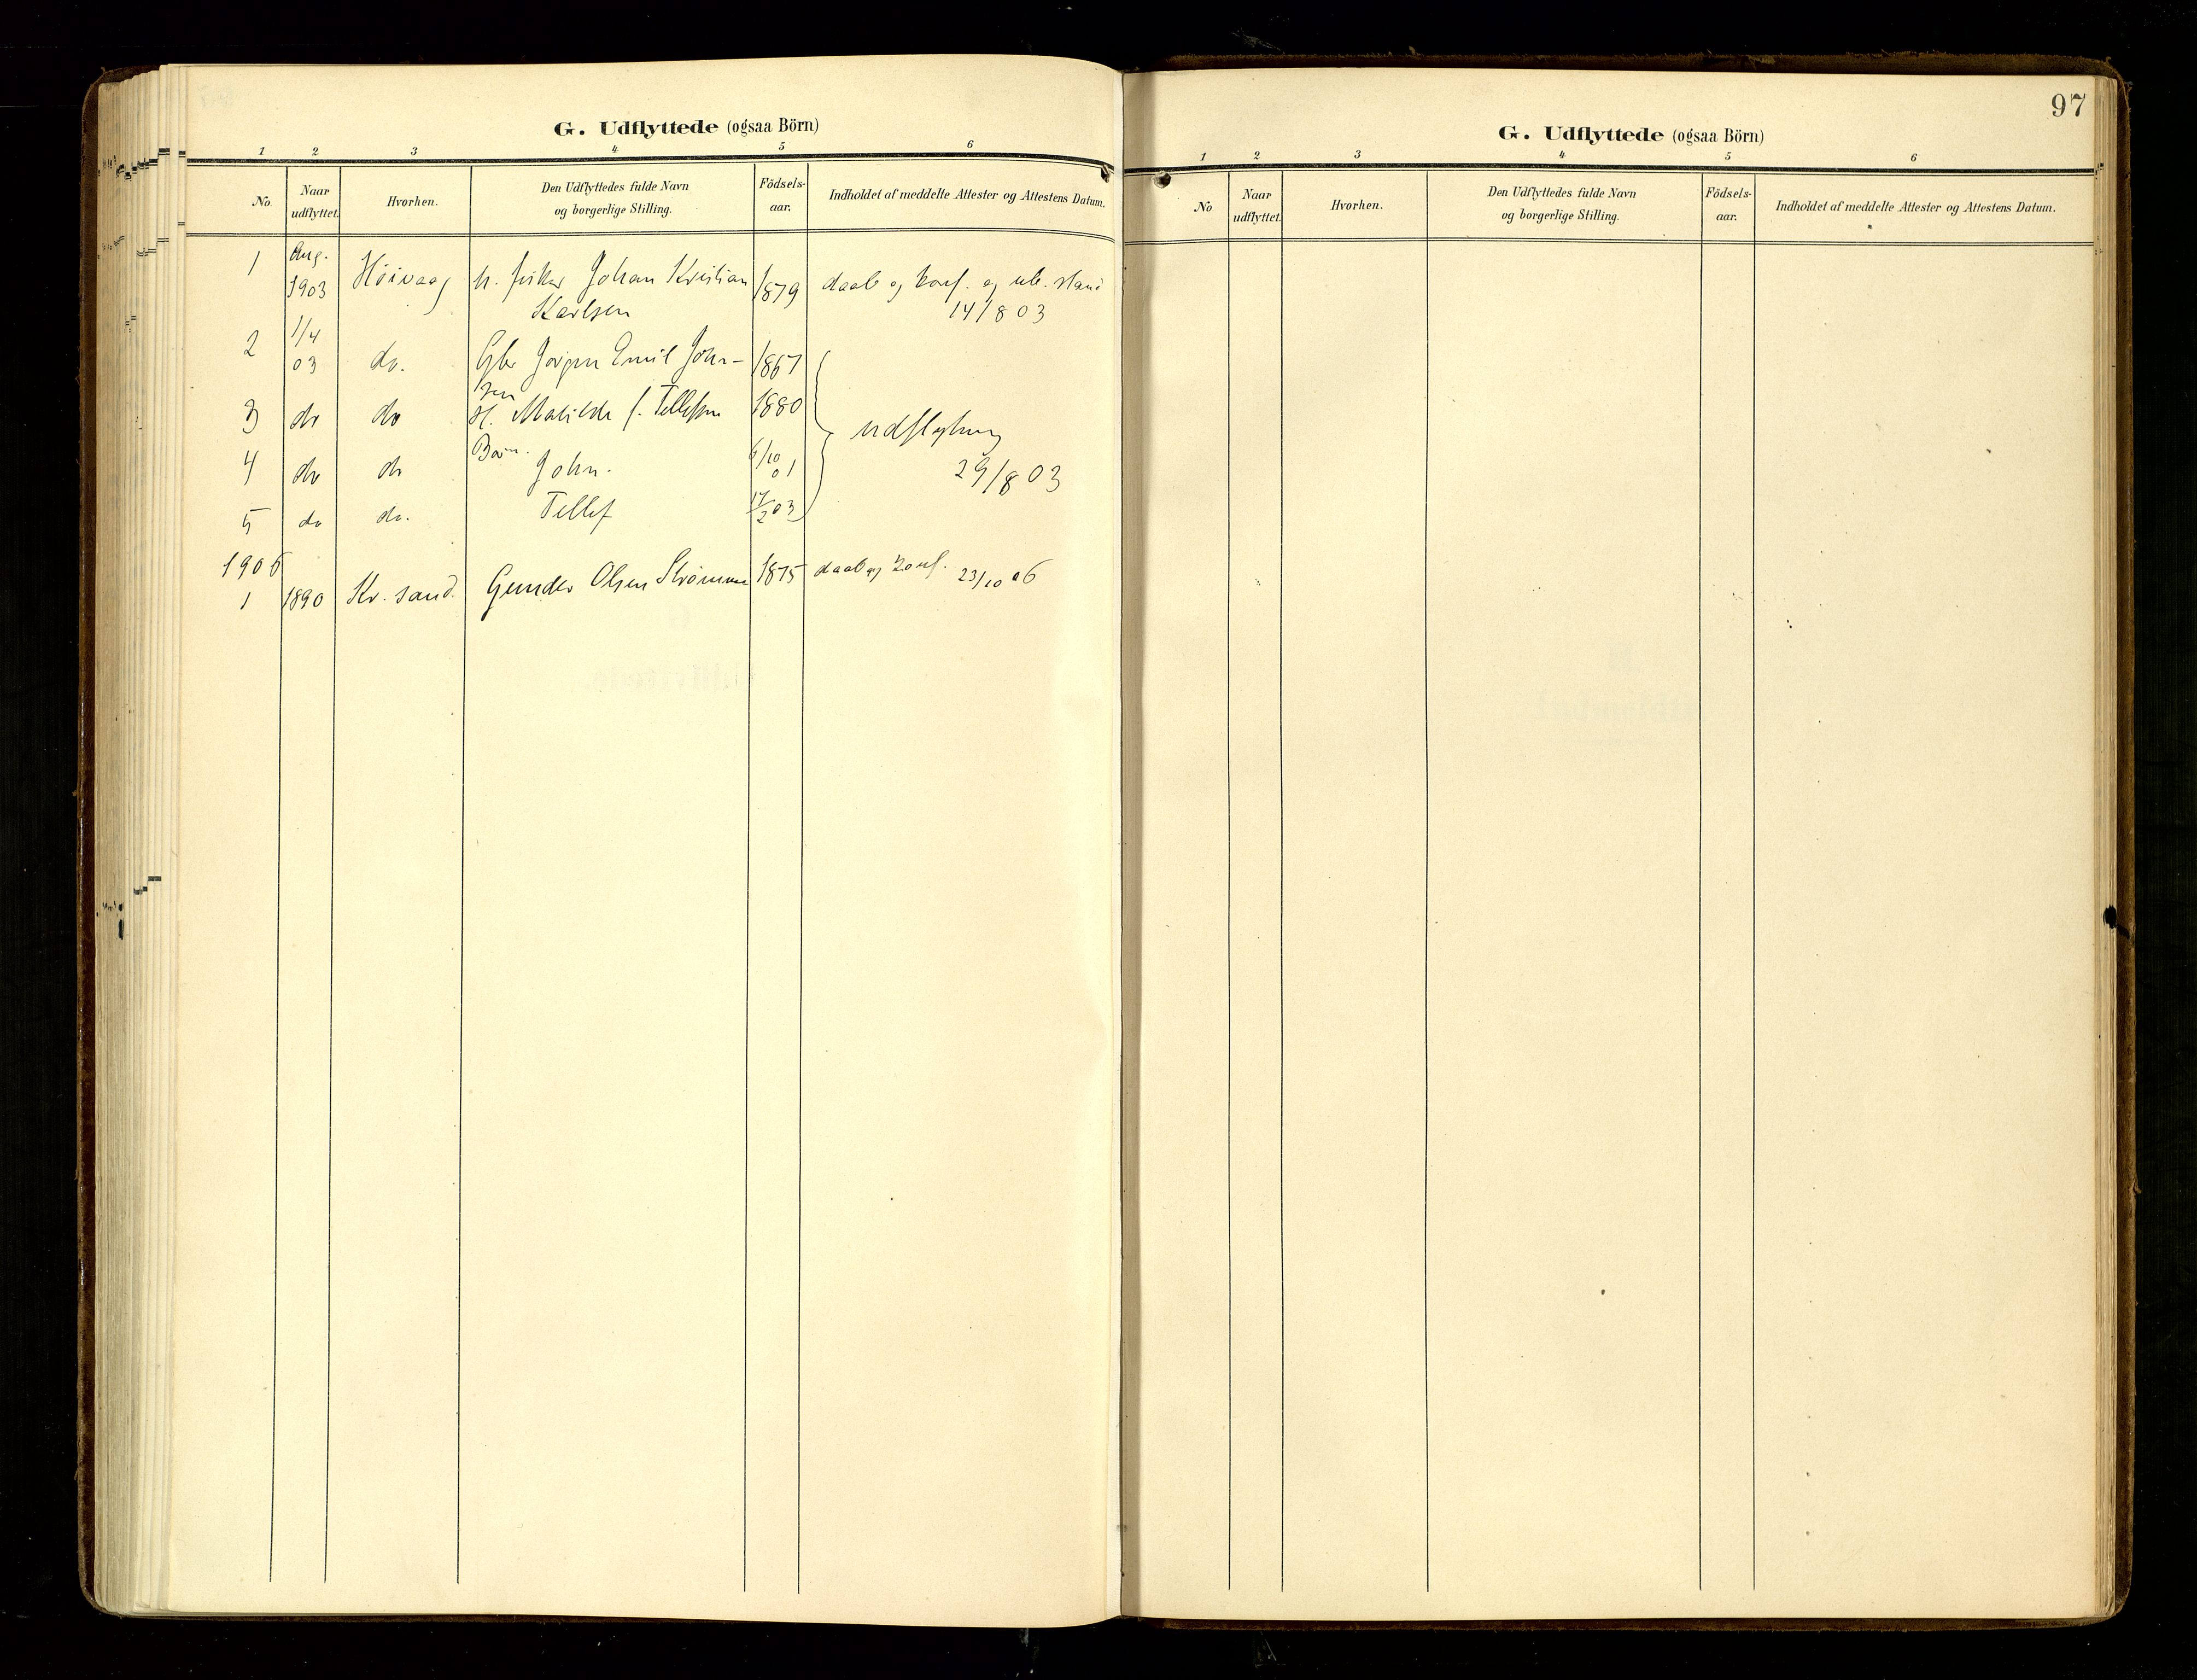 G. Udflyttede (ogsaa Börn)
1 2 3 4 5 6
No Naar udflyttet. Hvorhen. Den Udflyttedes fulde Navn og borgerlige Stilling. Födsels-aar. Indholdet af meddelte Attester og Attestens Datum.
1 Aug. 1903 Höivaag Johan Kristian 1879 daab og konf. og ub. stand
Karlsen 14/8 03
2 1/4 03 do. Gbr Jörgen Emil John- 1867
sen
3 do do H. Matilde f. Tellefsen 1880 udflytning
4 do do Börn. John. 6/10 01 29/8 03
5 do do. Tellef 17/2 03
1906
1 1890 Kr. sand. Gunder Olsen Strömme 1875 daab og konf. 23/10 06
97
G. Udflyttede (ogsaa Börn)
1 2 3 4 5 6
No Naar udflyttet. Hvorhen. Den Udflyttedes fulde Navn og borgerlige Stilling. Födsels-aar. Indholdet af meddelte Attester og Attestens Datum.